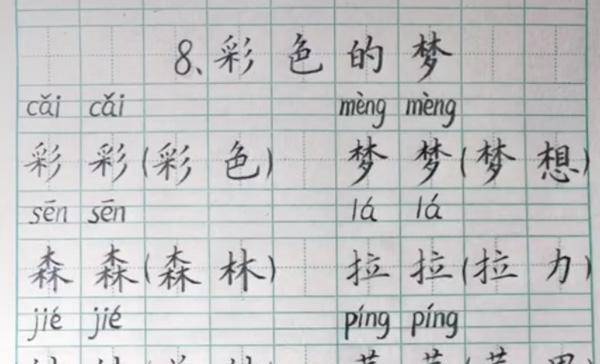 8、彩色的梦
cǎi cǎi mèng mèng
彩 彩(彩 色) 梦 梦(梦 想)
sēn sēn lá lá
森 森(森 林) 拉 拉(拉 力)
jié jié píng píng